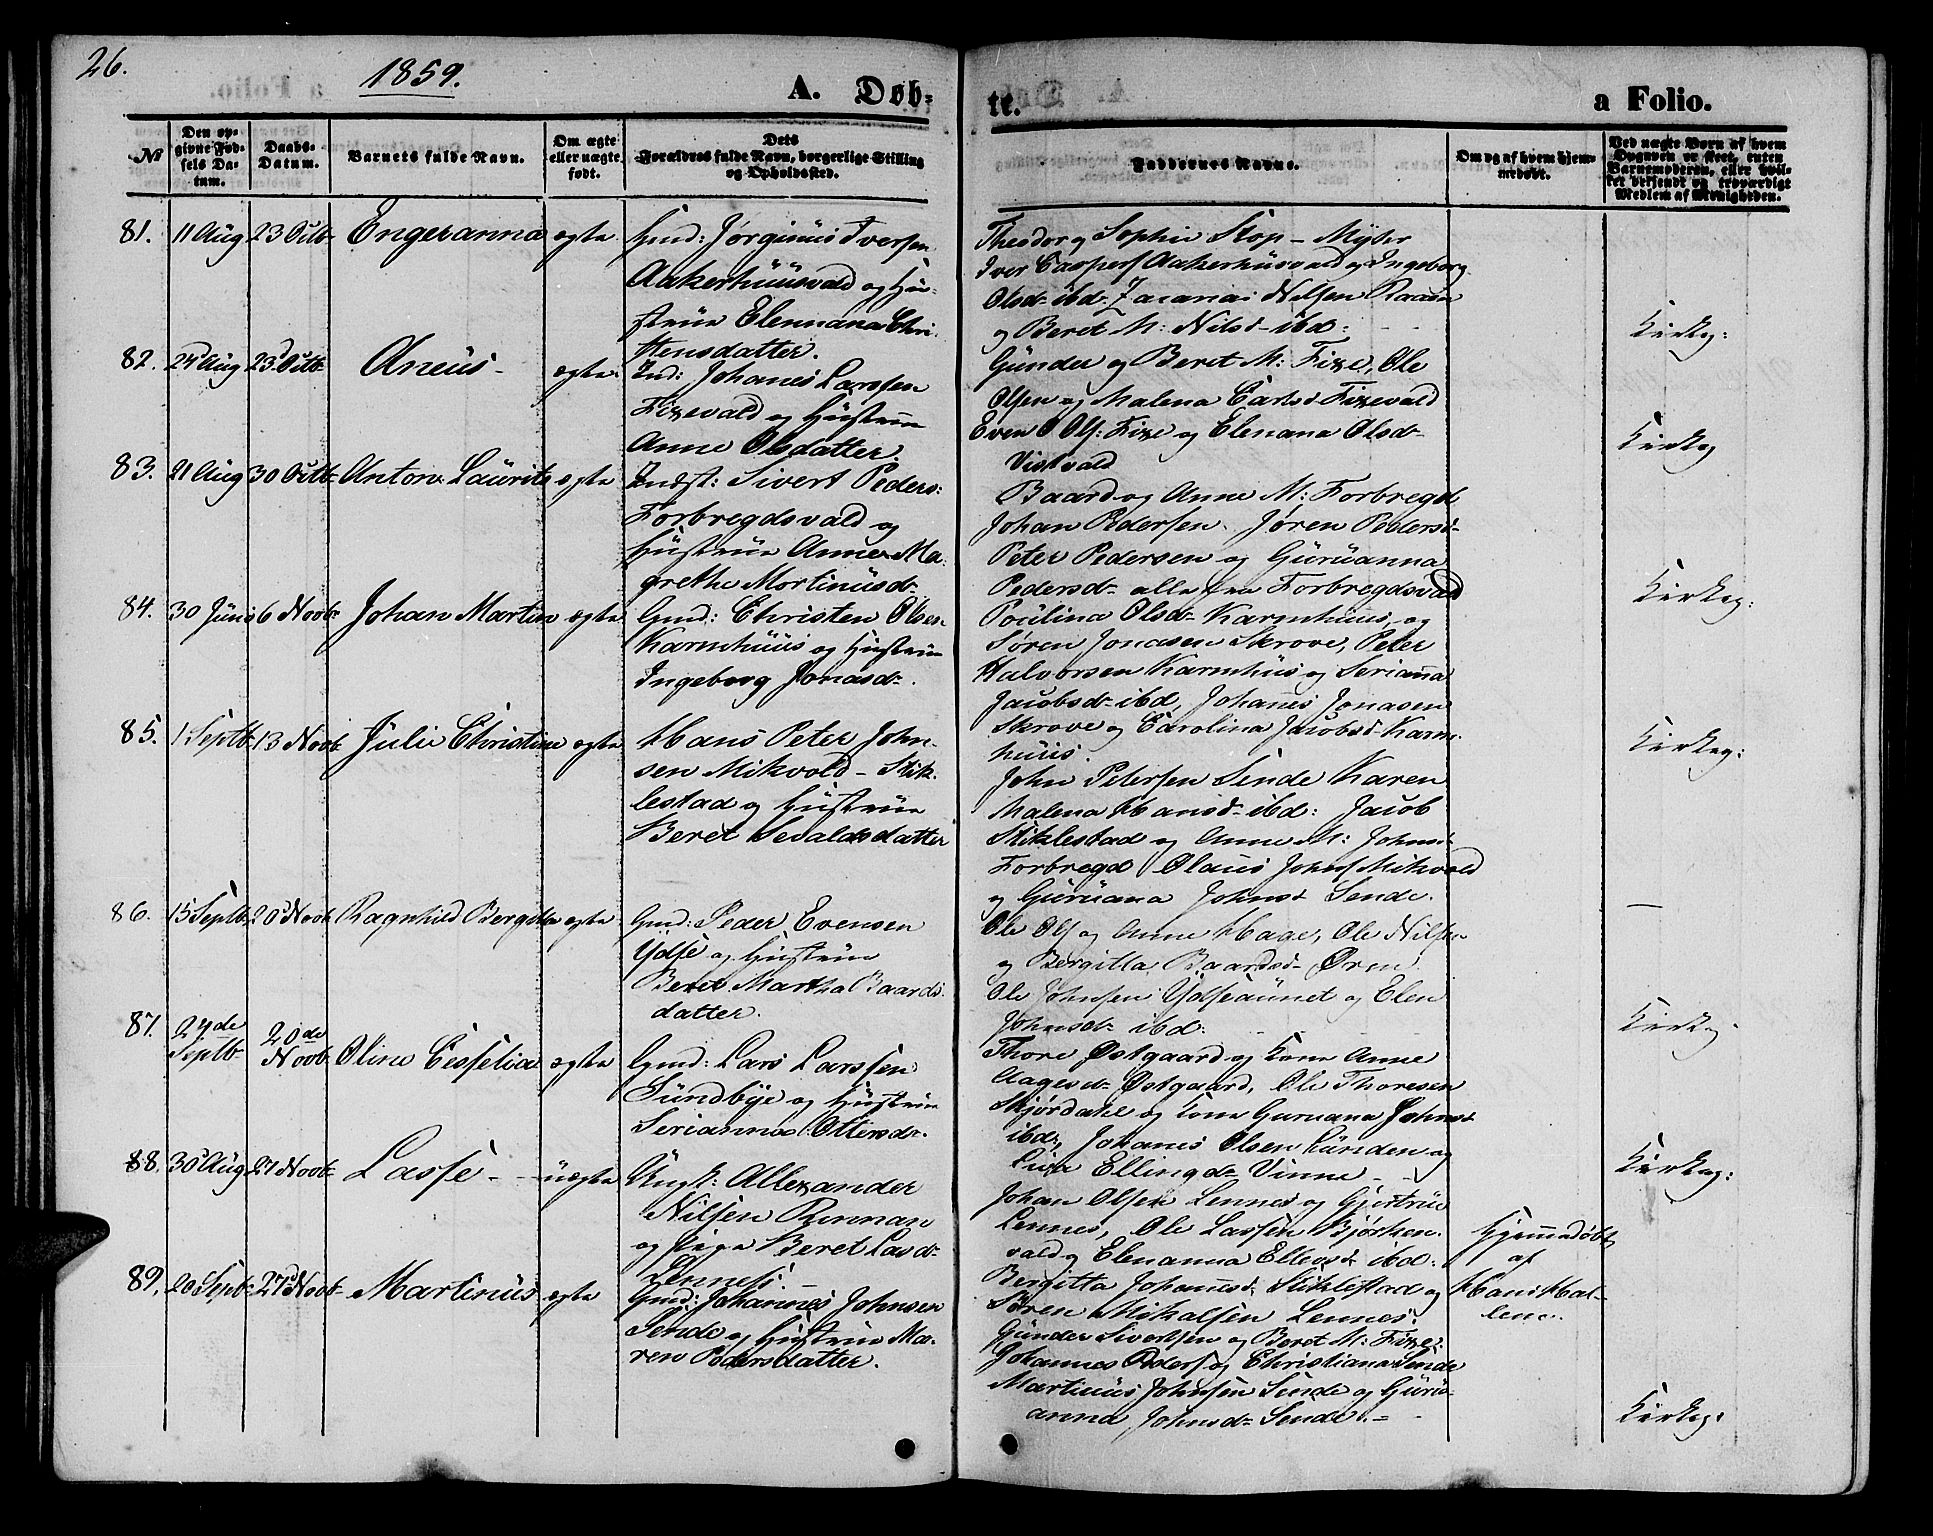 26.
1859.
A. Døb-
te.
a Folio.
No
Den op-
givne Fød-
sels Da-
tum.
Daabs-
Datum.
Barnets fulde Navn.
Om ægte
eller uægte
født.
Dets
Forældres fulde Navn, borgerlige Stilling
og Opholdssted.
Faddernes Navne.
Om og af hvem hjem-
medøbt.
Ved uægte Børn af hvem
Opgaven er skeet, enten
Barnemoderen, eller hvil-
ket bekjendt og troværdigt
Medlem af Menigheden.
81. 11 Aug 23 Octb- Engeranna ægte
Gmd: Jørginus Iversen
Aakerhuusvald og Hu-
strue Elennana Chri-
stensdatter.
Theodor og Sophie Stop - Myhr
Iver Caspers Aakerhusvald og Ingeborg
Olsd- ibd- Zacarias Nilsen
og Beret M: Nilsd- ibd:
Kirkeg:
82. 24 Aug 23 Octb- Aneus - ægte
Ind: Johanes Larssen
Fixevald og Hustrue
Anne Olsdatter.
Gunder og Beret M: Fixe, Ole
Olsen og Malena Carlsd Fixevald
Even O Ols: Fixe og Elenana Olsd-
Vistvald
Kirkeg
83. 21 Aug 30 Octb- Anton Laurits ægte
Indst: Sivert Peders:
Forbregdsvald og
Hustrue Anne Ma-
grethe Mortinusd-
Baard og Anne M: Forbregd
Johan Pedersen. Jøren Pedersd-
Peter Pedersen og Guruanna
Pedersd- alle fra Forbregdsvald
Kirkeg:
84. 30 Juni 6 Novb- Johan Martin ægte
Gmd: Christen Olsen
Karmhuus og Hustrue
Ingeborg Jonasd-.
Poulina Olsd- Karmhuus, og
Søren Jonasen Skrove, Peter
Halvorsen Karmhus og Serianna
Jacobsd- ibd, Johanes Jonasen
Skrove og Carolina Jacobsd Karm-
huus.
Kirkeg:
85. 1 Septb- 13 Novb Julie Christine ægte
Hans Peter John-
sen Mikvold - Stik-
lestad og Hustrue
Beret Sevaldsdatter
John Petersen Sende Karen
Malena Hansd- ibd: Jacob
Stiklestad og Anne M: Johnsd-
Forbregd Olaus Johns Mikvold
og Guruana Johnsd Sende.
-
86. 15 Septb 20 Novb Ragnhild Bergitta ægte
Gmd: Peder Evensen
Ydse og Hustrue
Beret Martha Baards-
datter.
Ole Ols og Anne Hage, Ole Nilsen
og Bergitta Baardsd- Øren.
Ole Johnsen Ydseaunet og Elen
Johnsd- ibd:
Kirkeg-
87. 24de
Septb- 20de
Novb- Oline Cesselia ægte
Gmd: Lars Larssen
Sundbye og Hustrue
Serianna Ottersd-.
Thore Østgaard og Kone Anne
Aagesd- Østgaard, Ole Thoresen
Skjørdahl og Kone Guruana Johnsd
ibd, Johanes Olsen Lunden og
Lisa Ellingd- Vinne - -
Kirkeg:
88. 30 Aug 27 Novb- Lasse - - uægte
Ungk: Allexander
Nilsen Rennan
og Pige Beret Lasd-
Lennes. -
Johan Olsen Lennes og Gjertrue
Lennes, Ole Lassen Bjørken-
vald og Elenanna Ellevsd- ibd:
Bergitta Johannesd- Stiklestad og
Søren Mikalsen Lennes.
Hjemmedøbt
af
Hans Hal-
lem.
89. 20 Septb- 27 Novb- Martinus ægte
Gmd: Johannes Johnsen
Sende og Hustrue Ma-
ren Pedersdatter.
Gunder Sivertsen og Beret M: Fixe.
Johannes Peders og Christiana Sende
Martinus Johnsen Sende og Guru-
anna Johnsd- Sende. -
Kirkeg: